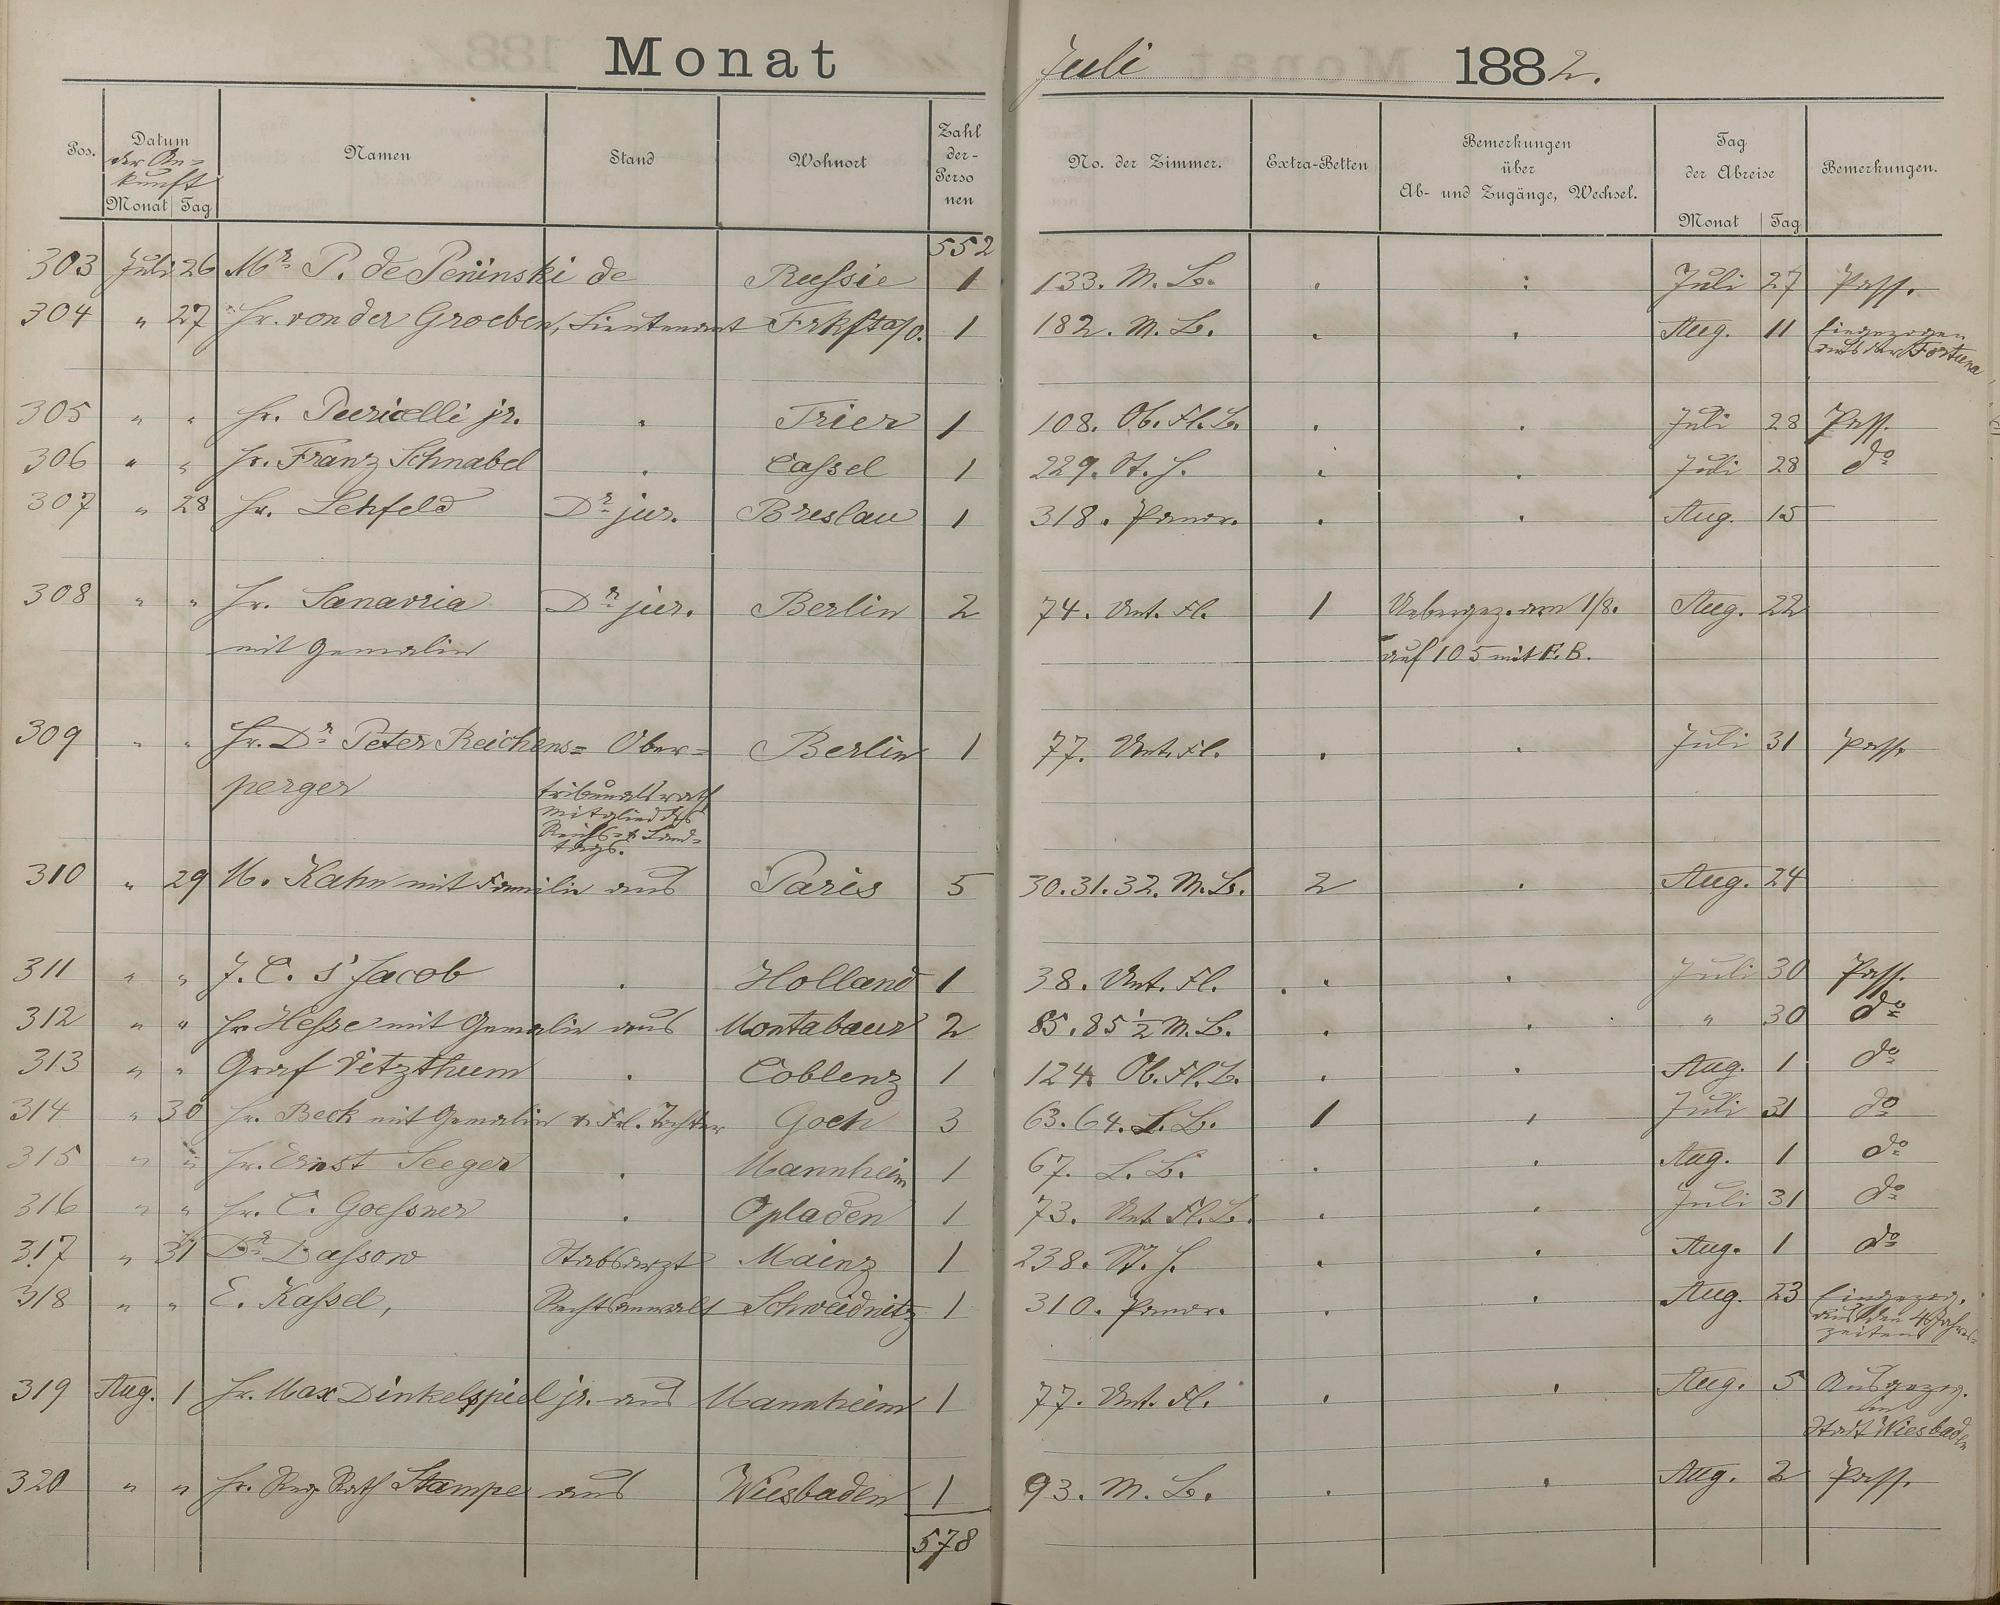 Monat Juli 1882.
Pos. Datum der Ankunft Monat Tag Namen Stand Wohnort Zahl der Personen No. der Zimmer. Extra-Betten Bemerkungen über Ab- und Zugänge, Wechsel. Tag der Abreise Monat Tag Bemerkungen.
552
303 Juli 26 Mr. P. de Peninski de Russie 1 133. M. B. Juli 27 Pass.
304 " 27 Hr. von der Groeben, Lieutenant Frkft a/O. 1 182. M. B. Aug. 11 Eingezogen
aus der Fortuna
305 " " Hr. Puricelli jr. Trier 1 108. Ob. Fl. B. Juli 28 Pass.
306 " " Hr. Franz Schnabel Cassel 1 229. St. H. Juli 28 do
307 " 28 Hr. Lehfeld Dr. jur. Breslau 1 318. Panor. Aug. 15
308 " " Hr. Sanavria Dr. jur. Berlin 2 74. Unt. Fl. 1 Uebergez. am 1/8. Aug. 22
mit Gemalin auf 105 mit E. B.
309 " " Hr. Dr. Peter Reichens= Ober= Berlin 1 77. Unt. Fl. Juli 31 Pass.
perger tribunalsrath
Mitglied des
Reichs- & Land-
tags.
310 " 29 M. Kahn mit Familie aus Paris 5 30. 31. 32. M. B. 2 Aug. 24
311 " " J. C. s'Jacob Holland 1 38. Unt. Fl. Juli 30 Pass.
312 " " Hr. Hesse mit Gemalin aus Montabaur 2 85. 85 1/2 M. B. " 30 do
313 " " Graf Vitzthum Coblenz 1 124. Ob. Fl. B. Aug. 1 do
314 " 30 Hr. Beck mit Gemalin & Frl. Tochter Goch 3 63. 64. L. B. 1 Juli 31 do
315 " " Hr. Ernst Seeger Mannheim 1 67. L. B. Aug. 1 do
316 " " Hr. C. Goessner Opladen 1 73. Unt. Fl. B. Juli 31 do
317 " 31 Dr. Dassow Stabsarzt Mainz 1 238. St. H. Aug. 1 do
318 " " E. Kassel, Rechtsanwalt Schweidnitz 1 310. Panor. Aug. 23 Eingezog.
aus den 4 Jahres-
zeiten
319 Aug. 1 Hr. Max Dinkelspiel jr. aus Mannheim 1 77. Unt. Fl. Aug. 5 Ausgezog.
in
Stadt Wiesbaden
320 " " Hr. Reg. Rath Stampe aus Wiesbaden 1 93. M. B. Aug. 2 Pass.
578